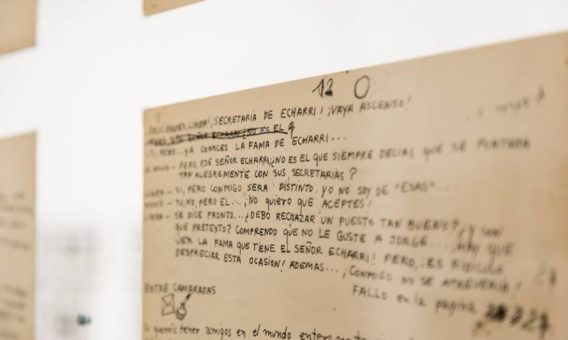 12 O
SECRETARIA DE ECHARRI! ¡VAYA ASCENSO!
PERO ESE SEÑOR ECHARRI ¿NO ES EL
SI, PERO... YA CONOCES LA FAMA DE ECHARRI...
PERO, ESE SEÑOR ECHARRI ¿NO ES EL QUE SIEMPRE DECIAS QUE SE PORTABA
TAN ALEGREMENTE CON SUS SECRETARIAS?
SI, PERO CONMIGO SERA DISTINTO. YO NO SOY DE "ESAS"...
TU, NO, PERO EL... ¡NO QUIERO QUE ACEPTES!
SE DICE PRONTO... ¿DEBO RECHAZAR UN PUESTO TAN BUENO? ¿Y CON
QUE PRETEXTO? COMPRENDO QUE NO LE GUSTE A JORGE... HAY QUE
VER LA FAMA QUE TIENE EL SEÑOR ECHARRI! PERO, ¡ES RIDICULO
DESPRECIAR ESTA OCASION! ADEMAS... ¡CONMIGO NO SE ATREVERIA!
FALLO en la pagina
ENTRE CAMARADAS
tener amigos en el mundo entero